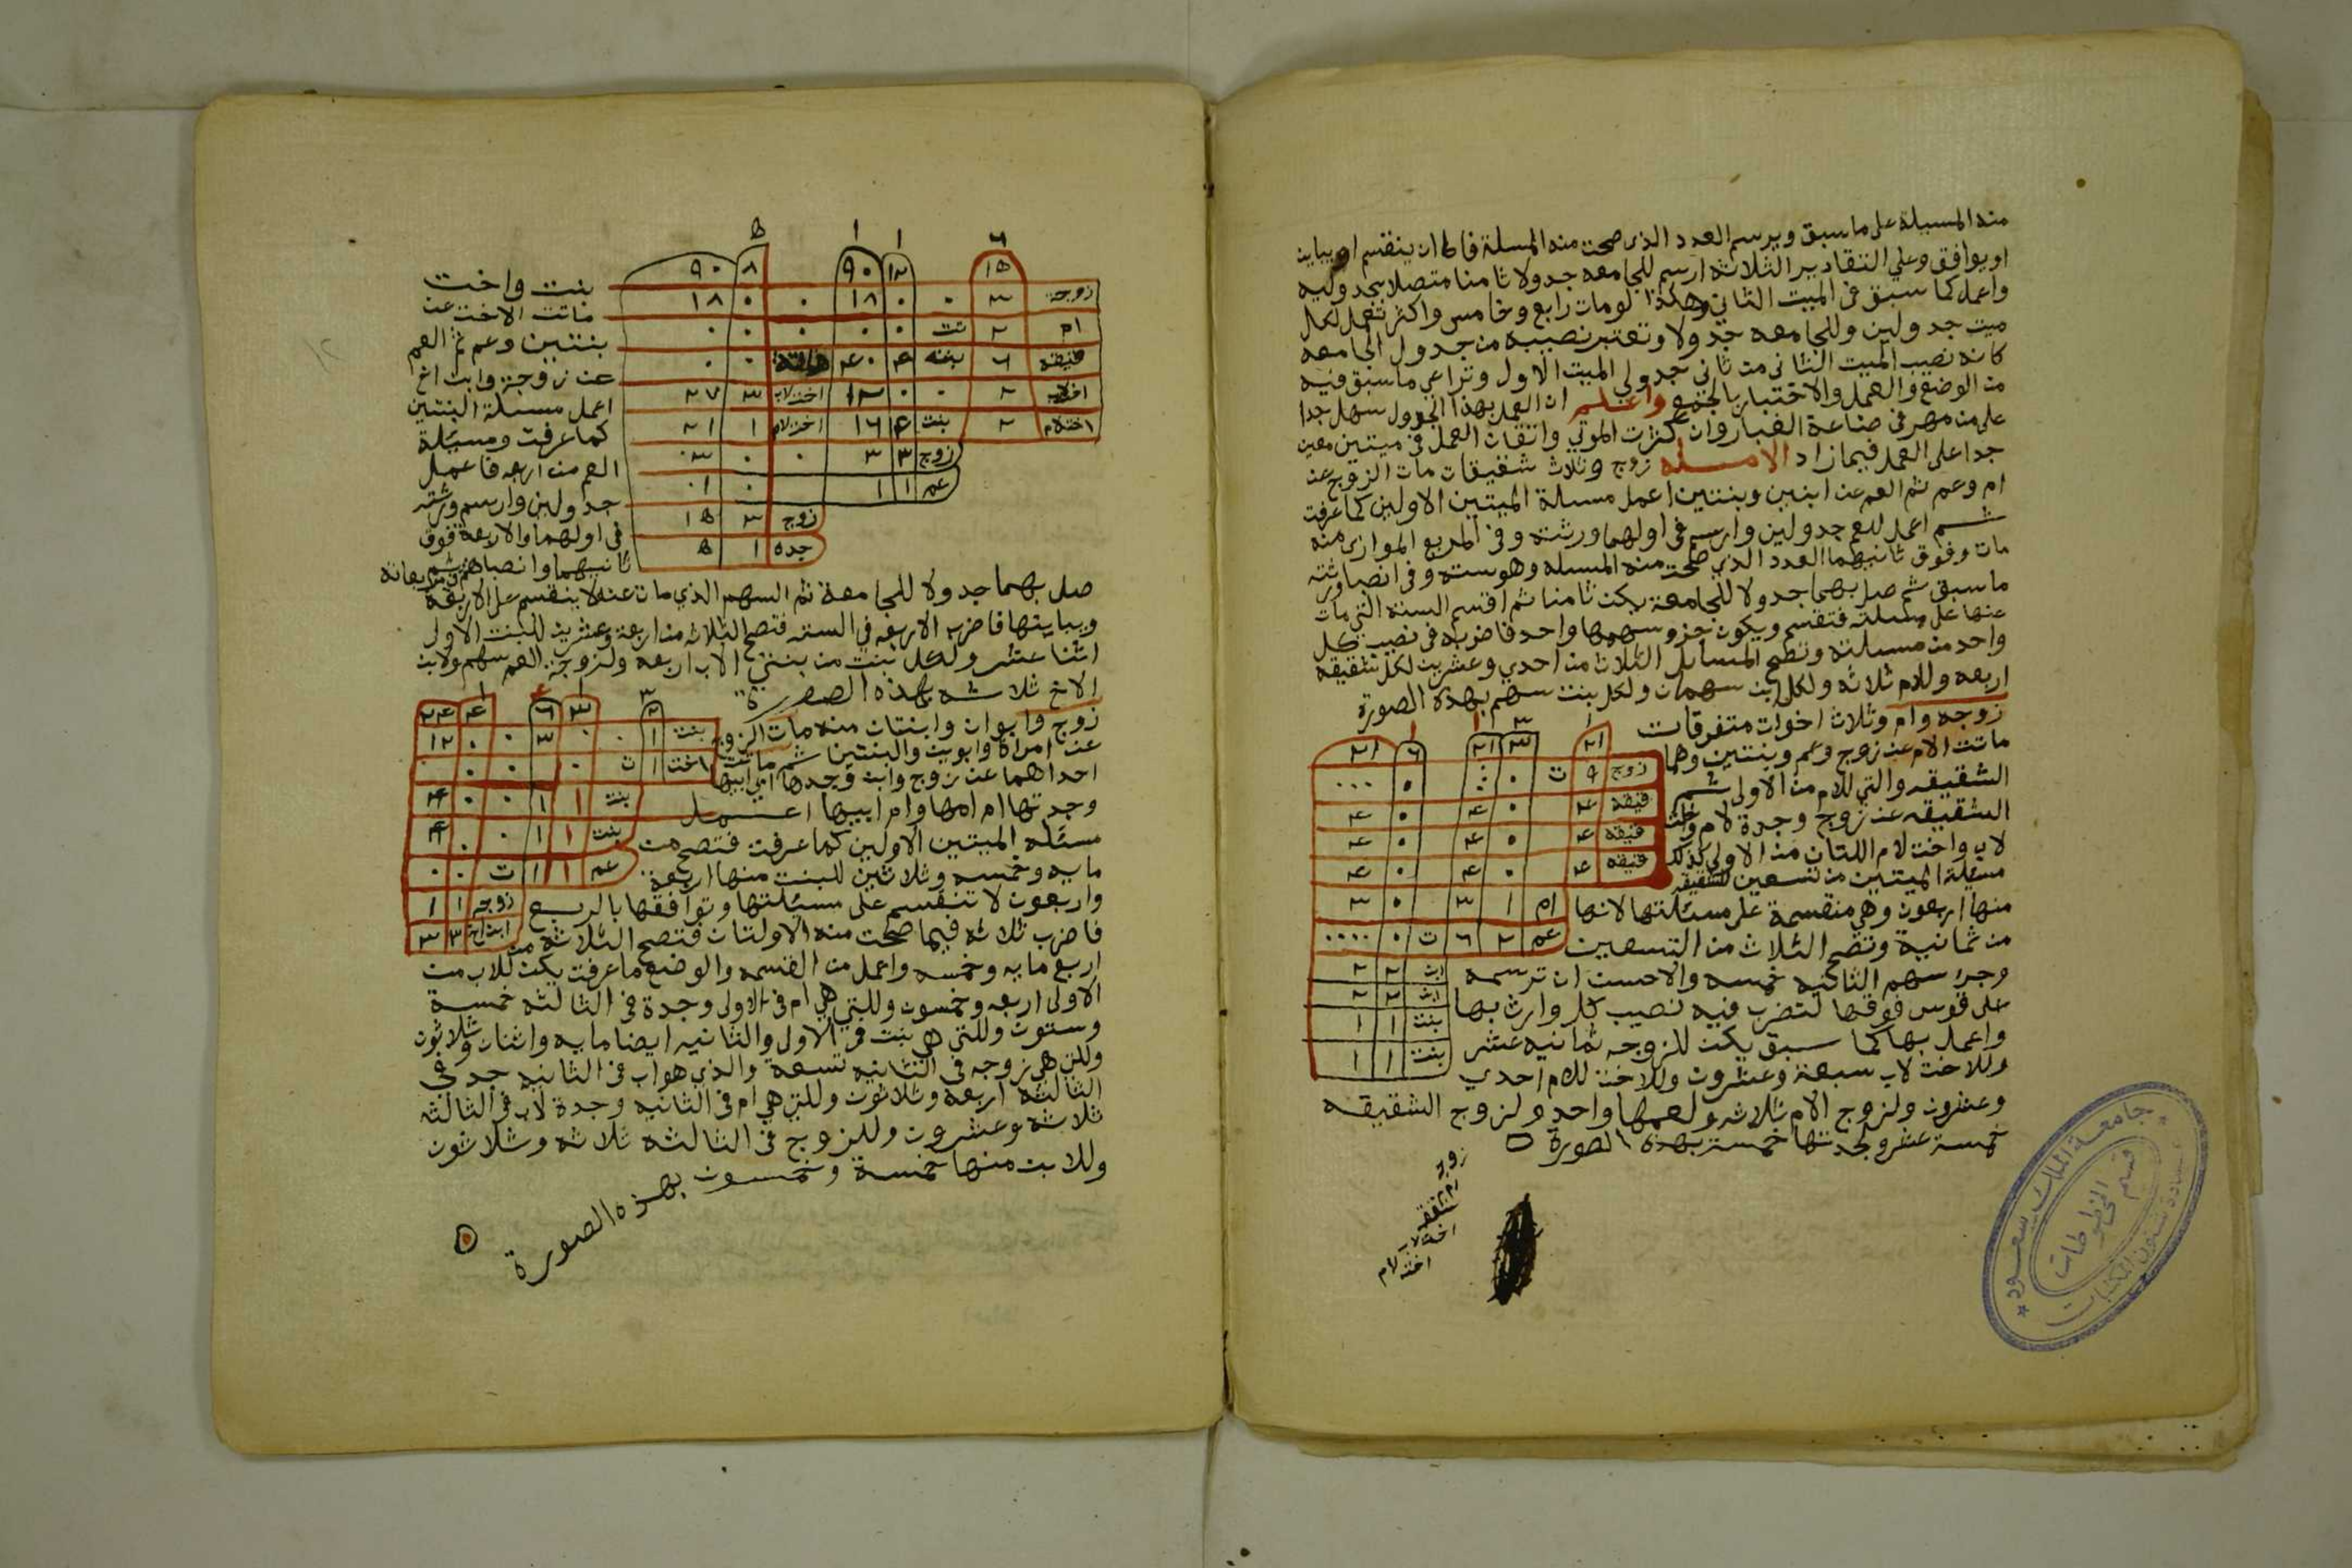 منه المسيلة على ما سبق ويرسم العدد الذي صحت منه المسلة فاما ان ينقسم او يباين
او يوافق وعلي التقادير الثلاثه ارسم للجامعه جدولا ثامنا متصلا بجدوليه
واعمل كما سبق في الميت الثاني وهكذا لو مات رابع وخامس واكثر تعمل لكل
ميت جدولين وللجامعه جدولا وتعتبر نصيبه من جدول الجامعه
كانه نصيب الميت الثاني من ثاني جدولي الميت الاول وتراعي ما سبق فيه
من الوضع والعمل والاختبار بالجمع واعلم ان العمل بهذا الجدول سهل جدا
على من مهر في صناعة الغبار وان كثرت الموتي واتقان العمل في ميتين معين
جدا على العمل فيما زاد الامسله زوج وثلاث شقيقات مات الزوج عن
ام وعم ثم العم عن ابنين وبنتين اعمل مسلة الميتين الاولين كما عرفت
ثم اعمل للعم جدولين وارسم في اولهما ورثته وفي المربع الموازي منه
مات وفوق ثانيهما العدد الذي صحت منه المسله وهو سته وفي انصبا ورثته
ما سبق ثم صل بهما جدولا للجامعة يكن ثامنا ثم اقسم الستة التي مات
عنها على مسلته فتقسم ويكون جزو سهمها واحد فاضربه في نصيب كل
واحد من مسلته وتصح المسايل الثلاث من احدي وعشرين لكل شقيقه
اربعه وللام ثلاثه ولكل ابن سهمان ولكل بنت سهم بهذه الصورة
زوجه وام وثلاث اخوات متفرقات
ماتت الام عن زوج وعم وبنتين وهما
الشقيقه والتي للام من الاولى ثم
الشقيقه عن زوج وجدة لام واخت
لاب واخت لام اللتان من الاولي كذلك
مسيلة الميتين من تسعين للشقيقه
منها اربعون وهي منقسمة على مسيلتها لانها
من ثمانية وتصح الثلاث من التسعين
وجزء سهم الثانيه خمسه والاحسن ان ترسمه
على قوس فوقها لتضرب فيه نصيب كل وارث بها
واعمل بها كما سبق يكن للزوجه ثمانيه عشر
وللاخت لاب سبعة وعشرون وللاخت للام احدي
وعشرون ولزوج الام ثلاثه ولعمها واحد ولزوج الشقيقه
خمسة عشر ولجدتها خمسة بهذه الصورة
٢١ ٣ ٢١ ٦ ٢١
زوج ٩ ت ٠
قيقه ٤ ٠ ٤ ٠ ٤
قيقه ٤ ٠ ٤ ٠ ٤
قيقه ٤ ٠ ٤ ٠ ٤
ام ١ ٣ ٠ ٣
عم ٢ ٦ ت ٠
ابن ٢ ٢
ابن ٢ ٢
بنت ١ ١
بنت ١ ١
زوجه
ام
شقيقه
اخت لاب
اخت لام
جامعة الملك سعود
قسم المخطوطات
عمادة شئون المكتبات
٦ ١ ١ ٥
١٥ ١٢ ٩٠ ٨ ٩٠
زوجة ٣ ٠ ٠ ١٨ ٠ ٠ ١٨
ام ٢ تت ٠ ٠ ٠ ٠ ٠
قيقه ٦ بنته ٤ ٤٠ ماتت ٠ ٠
اختلاب ٢ ٠ ٠ ١٢ اخت لاب ٣ ٢٧
اختلام ٢ بنت ٤ ١٦ اخت لام ١ ٢١
زوج ٣ ٣ ٠ ٠ ٣
عم ١ ١ ٠ ١
زوج ٣ ١٥
جده ١ ٥
بنت واخت
ماتت الاخت عن
بنتين وعم ثم العم
عن زوجة وابن اخ
اعمل مسيلة البنتين
كما عرفت ومسيلة
العم من اربعه فاعمل
جدولين وارسم ورثته
في اولهما والاربعة فوق
ثانيهما وانصباهم في مربعاته ثم
صل بهما جدولا للجامعة ثم السهم الذي مات عنه لا ينقسم على الاربعة
ويباينها فاضرب الاربعه في السته فتصح الثلاثه من اربعة وعشرين للبنت الاولى
اثنا عشر ولكل بنت من بنتي الاب اربعه ولزوجة العم سهم ولابن
الاخ ثلاثه بهذه الصورة
٢ ٣ ٦ ٤ ٢٤
بنت ١ ٠ ٠ ٣ ٠ ٠ ١٢
اخت ١ ت ٠ ٠ ٠ ٠ ٠
بنت ١ ١ ٠ ٠ ٤
بنت ١ ١ ٠ ٠ ٤
عم ١ ١ ت ٠ ٠
زوجه ١ ١
ابن اخ ٣ ٣
زوج وابوان وابنتان منه مات الزوج
عن امراة وابوين والبنتين ثم ماتت
احداهما عن زوج وابن وجدها ابي ابيها
وجدتها ام امها وام ابيها اعمل
مسئله الميتين الاولين كما عرفت فتصح من
مايه وخمسه وثلاثين للبنت منها اربعة
واربعون لا تنقسم على مسئلتها وتوافقها بالربع
فاضرب ثلاثه فيما صحت منه الاولتان فتصح الثلاثه من
اربع مايه وخمسه واعمل من القسمه والوضع ما عرفت يكن للاب من
الاولى اربعه وخمسون وللتي هي ام في الاولى وجدة في الثالثه خمسة
وستون وللتي هي بنت في الاول والثانيه ايضا مايه واثنان وثلاثون
وللتي هي زوجه في الثانيه تسعة والذي هو اب في الثانيه جد في
الثالثه اربعه وثلاثون وللتي هي ام في الثانيه وجدة لاب في الثالثه
ثلاثه وعشرون وللزوج في الثالثه ثلاثه وثلاثون
وللابن منها خمسة وخمسون بهذه الصورة